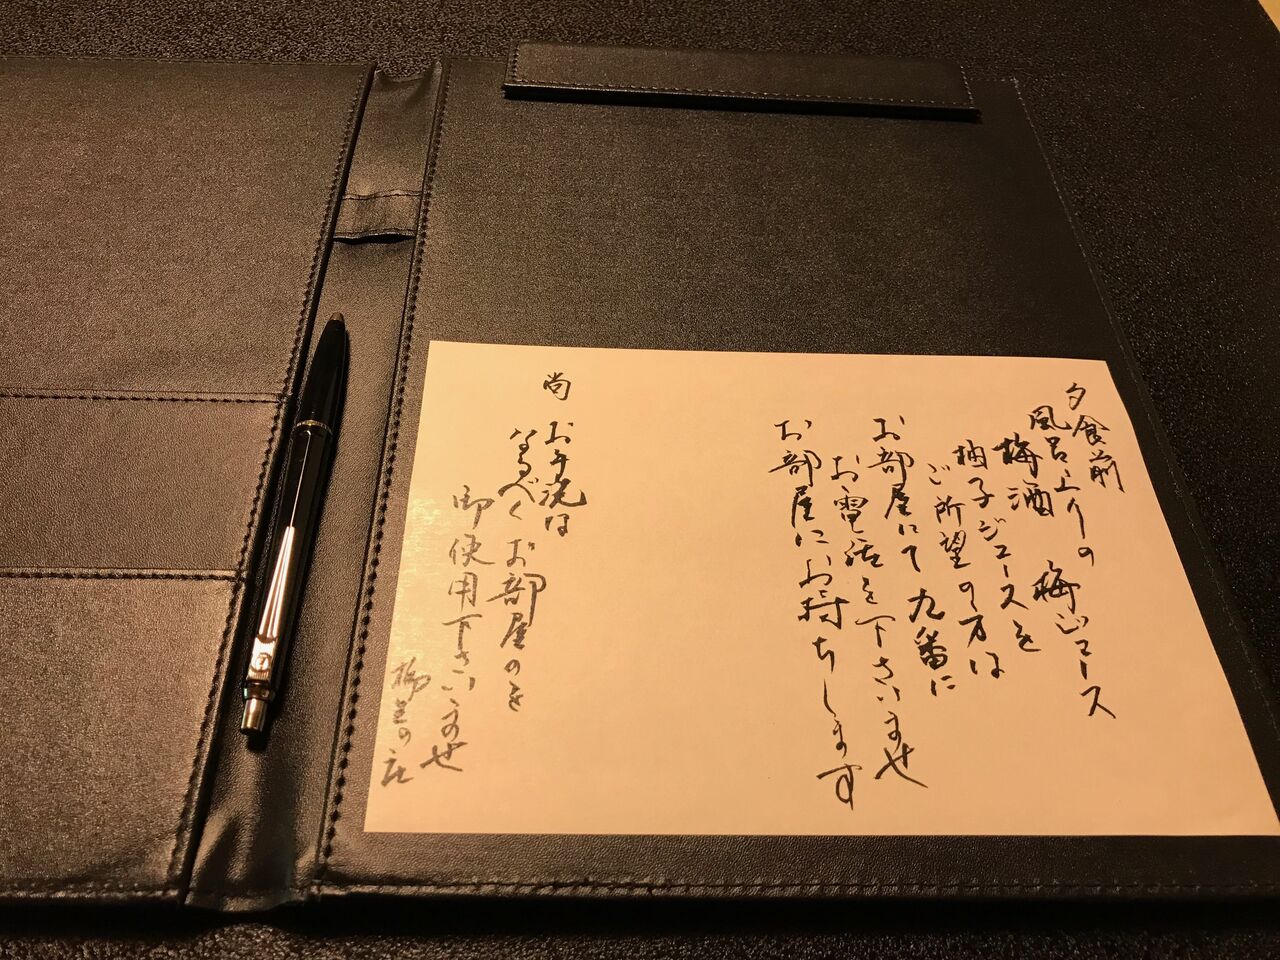 夕食前
風呂上りの
梅酒　梅ジュース
柚子ジュースを
ご所望の方は
お部屋にて 九番に
お電話を下さいませ
お部屋にお持ちします
尚 お手洗は
なるべくお部屋のを
御使用下さいませ